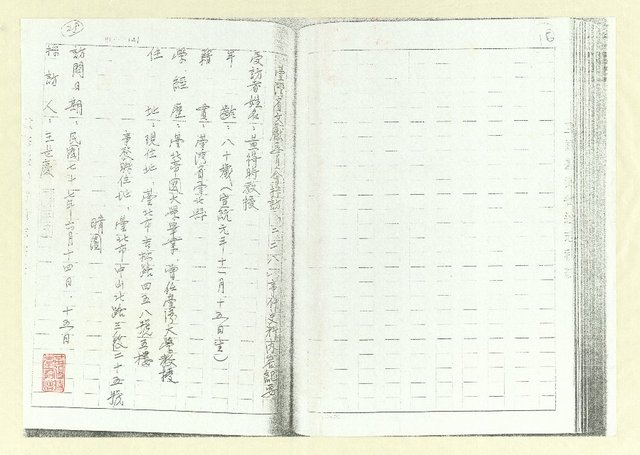 臺灣省文獻委員會採訪「二二八」事件史料內容紀要
受訪者姓名：黃得時教授
年齡：八十歲（宣統元年十一月十五日生）
籍貫：臺灣省臺北縣
學經歷：臺北帝國大學畢業，曾任臺灣大學教授
住址：現住址 臺北市吉林路四五八號五樓
事發時住址：臺北市中山北路三段二十五號
晴園
訪問日期：民國七十七年六月十四日、十五日
採訪人：王世慶